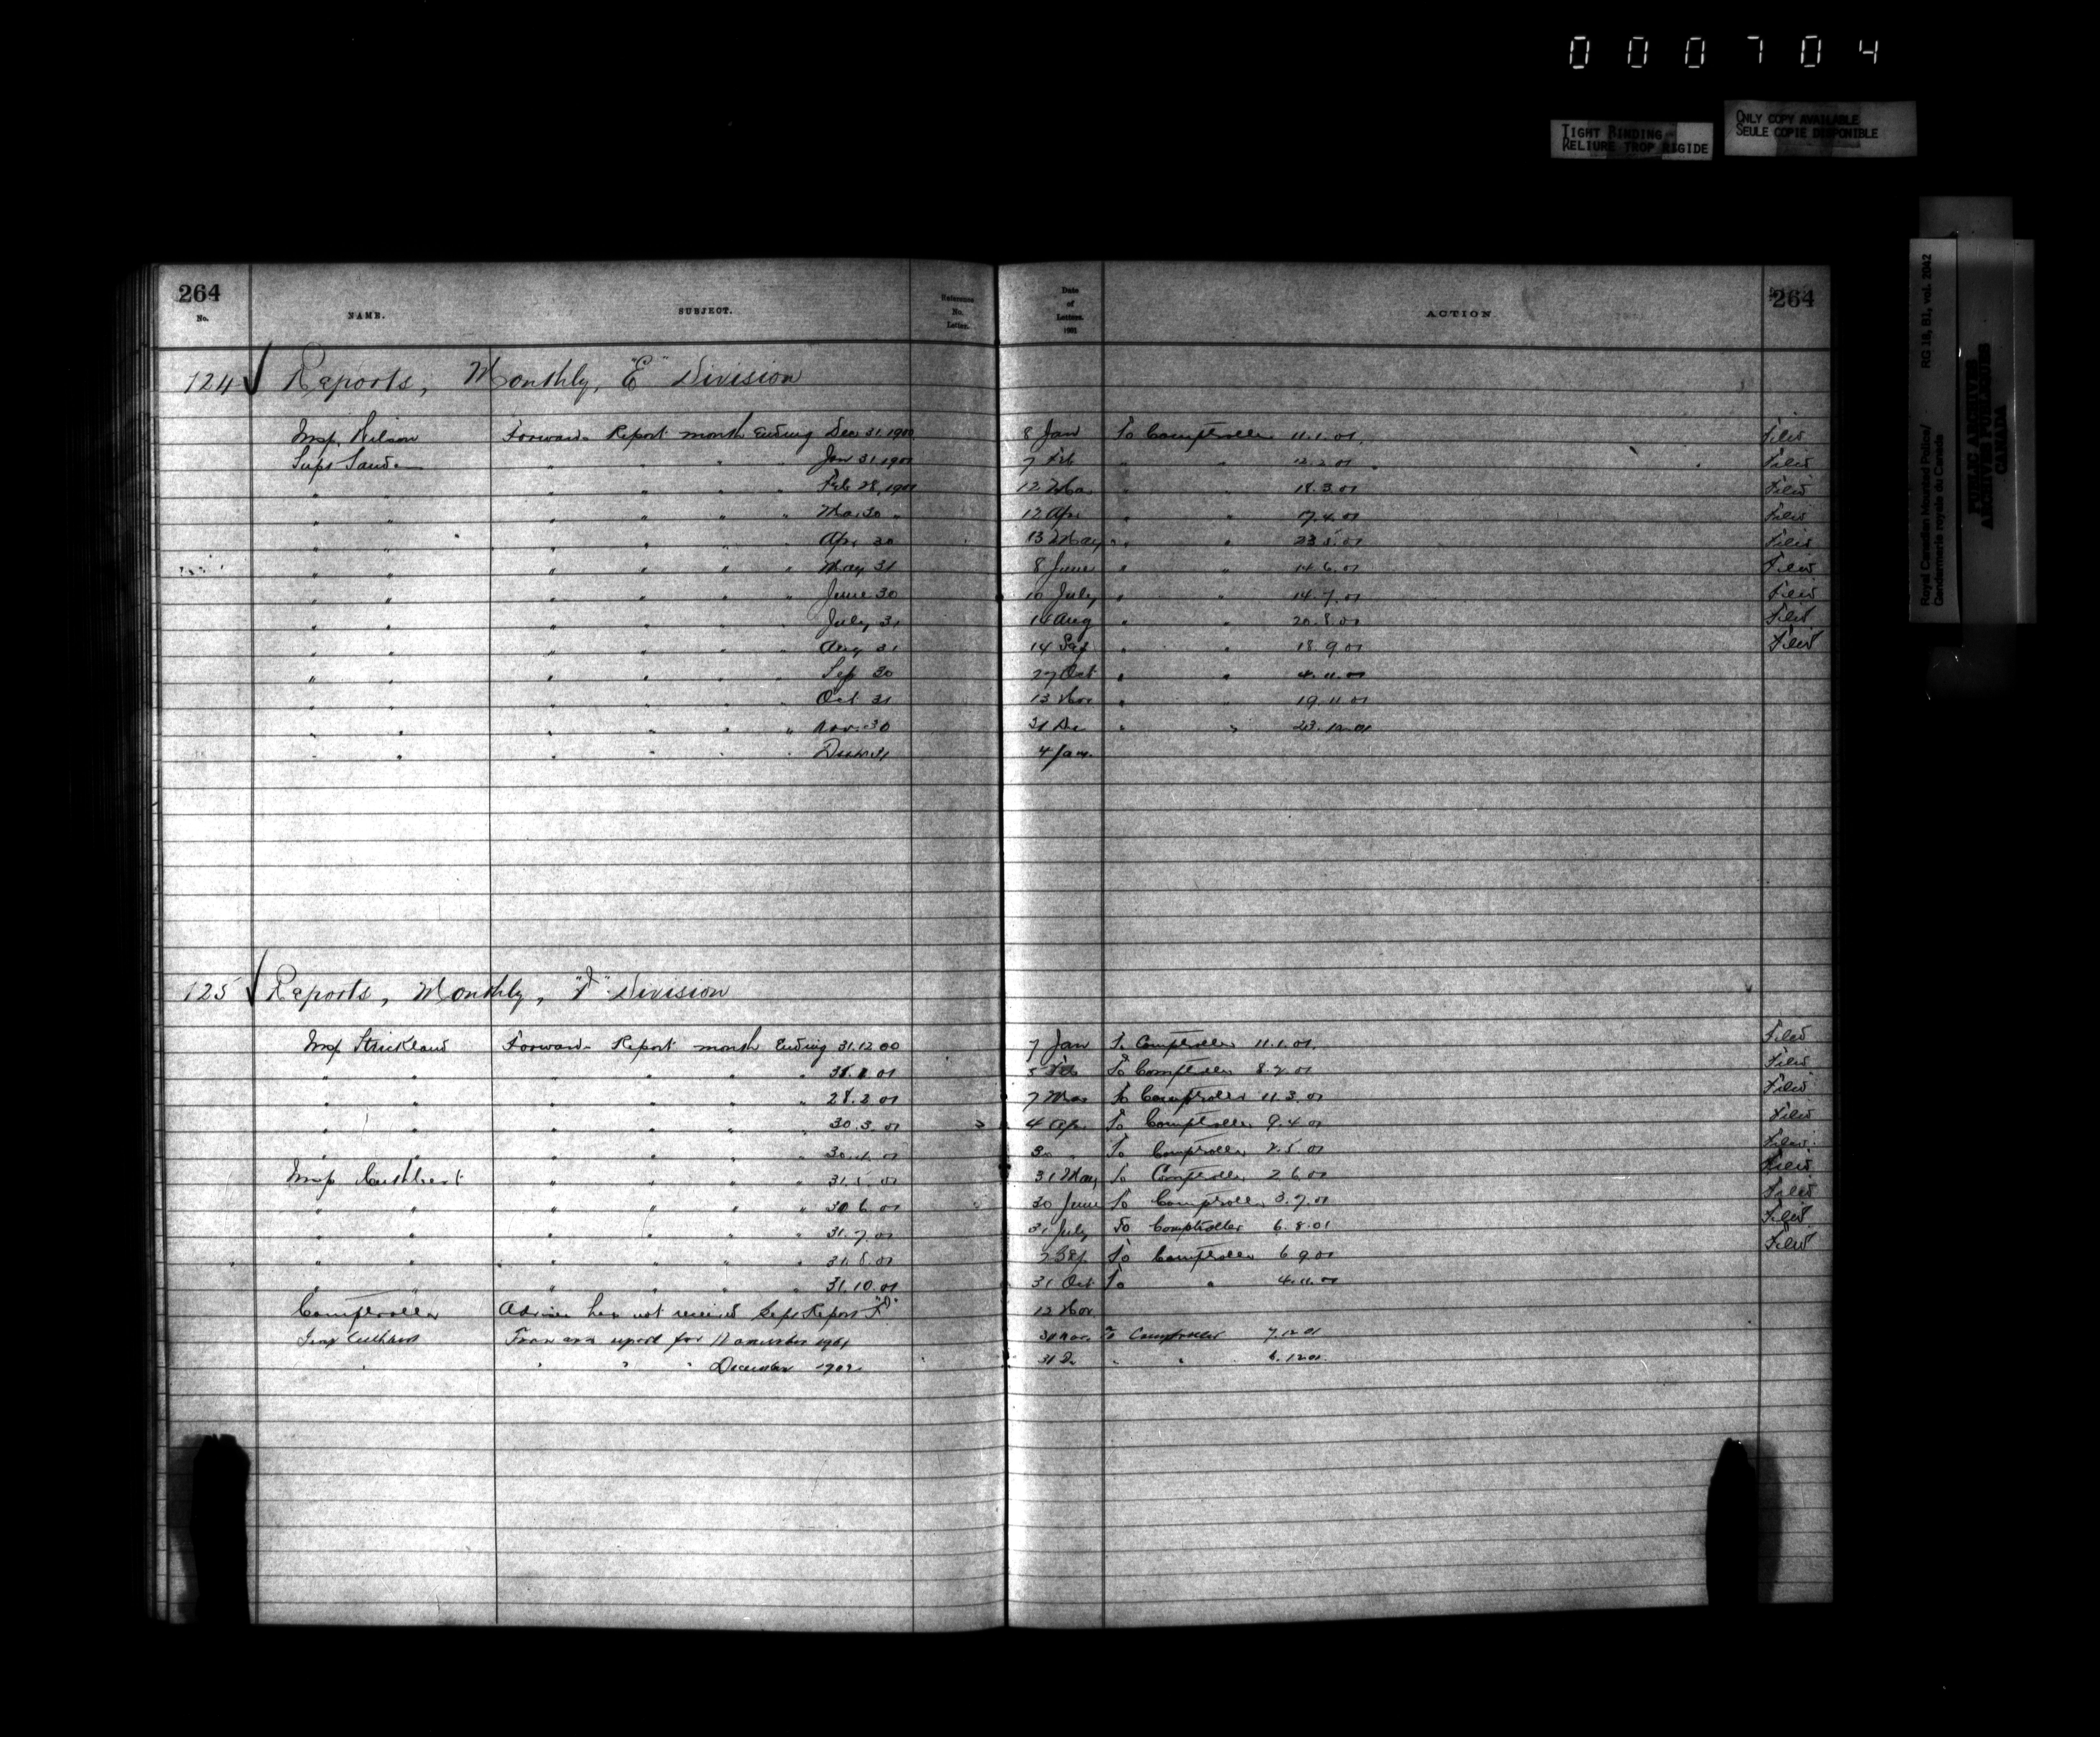 000704
TIGHT BINDING
RELIURE TROP RIGIDE
ONLY COPY AVAILABLE
SEULE COPIE DISPONIBLE
Royal Canadian Mounted Police/ RG 18, B1, vol. 2042
Gendarmerie royale du Canada
PUBLIC ARCHIVES
ARCHIVES PUBLIQUES
CANADA
264 264
No. NAME. SUBJECT. Reference No. Letter. Date of Letters. 1901 ACTION
124 Reports, Monthly, "E" Division
Insp. Wilson Forwards Report month Ending Dec 31, 1900 8 Jan To Comptroller 11.1.01. Filed
Supt Sanders " " " " Jan 31, 1901 7 Feb " " 12.2.01 Filed
" " " " " " Feb 28, 1901 12 Mar " " 18.3.01 Filed
" " " " " " Mar 30 " 12 Apr " " 17.4.01 Filed
" " " " " " Apr 30 13 May " " 23.5.01 Filed
" " " " " " May 31 8 June " " 14.6.01 Filed
" " " " " " June 30 10 July " " 14.7.01 Filed
" " " " " " July 31 16 Aug " " 20.8.01 Filed
" " " " " " Aug 31 14 Sep " " 18.9.01 Filed
" " " " " " Sep 30 27 Oct " " 4.11.01
" " " " " " Oct 31 13 Nov " " 19.11.01
" " " " " " Nov. 30 " " 23.12.01
" " " " " " Dec 31 4 Jan.
125 Reports, Monthly, "F" Division
Insp Strickland Forwards Report month Ending 31.12.00 7 Jan To Comptroller 11.1.01. Filed
" " " " " " 31.1.01 5 Feb To Comptroller 8.2.01 Filed
" " " " " " 28.2.01 7 Mar To Comptroller 11.3.01 Filed
" " " " " " 30.3.01 4 Apr To Comptroller 9.4.01 Filed
" " " " " " 30.4.01 30 " To Comptroller 2.5.01 Filed
Insp Cuthbert " " " " 31.5.01 31 May To Comptroller 2.6.01 Filed
" " " " " " 30.6.01 30 June To Comptroller 3.7.01 Filed
" " " " " " 31.7.01 31 July To Comptroller 6.8.01 Filed
" " " " " " 31.8.01 Sep To Comptroller 6.9.01 Filed
" " " " " " 31.10.01 31 Oct To " 4.11.01
Comptroller Advise has not received Sept Report "F" 12 Nov
Insp Cuthbert Forward report for November 1901 30 Nov To Comptroller 7.12.01
" " " " December 1901 31 D " " 6.12.01.